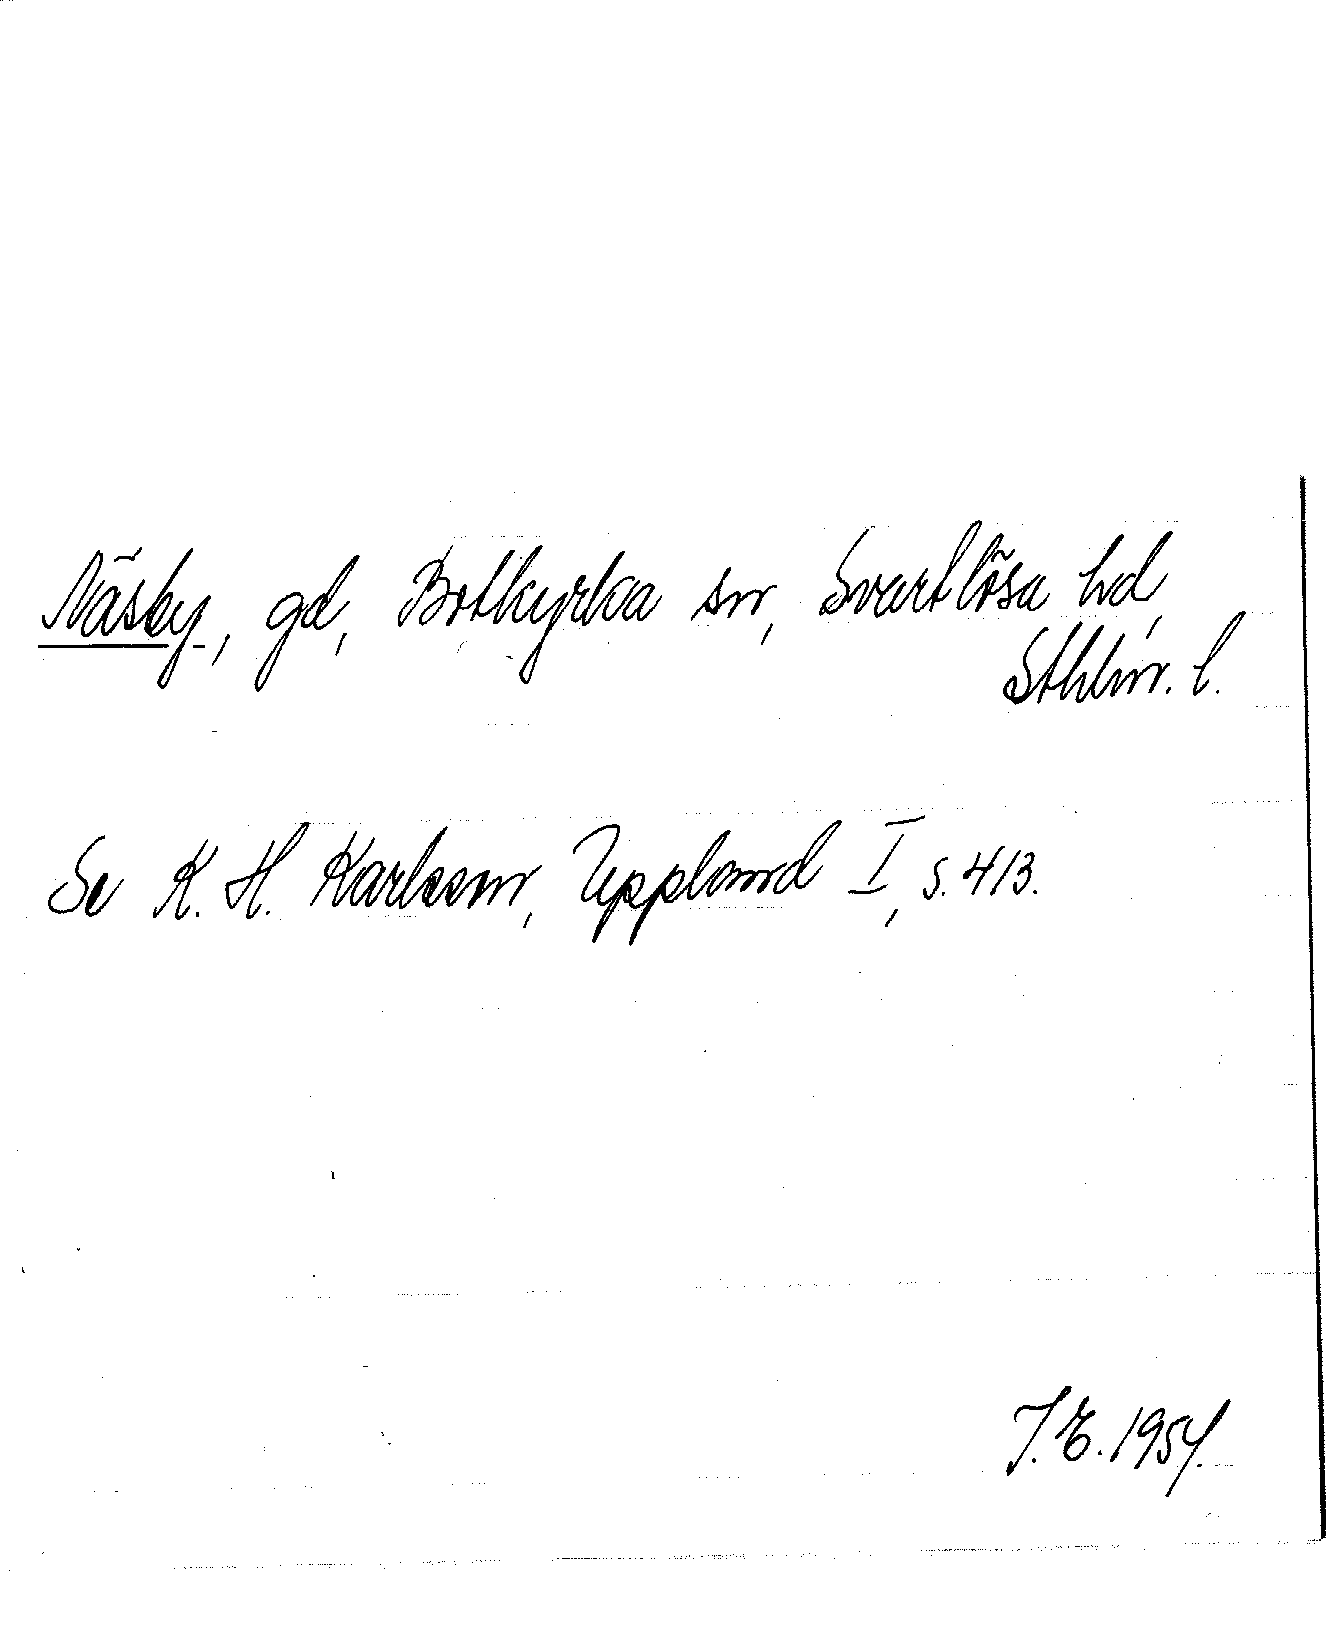 Näsby, gd, Botkyrka sn, Svartlösa hd,
Sthlm. l.
Se K. H. Karlsson, Uppland I, s. 413.
J. E. 1954.